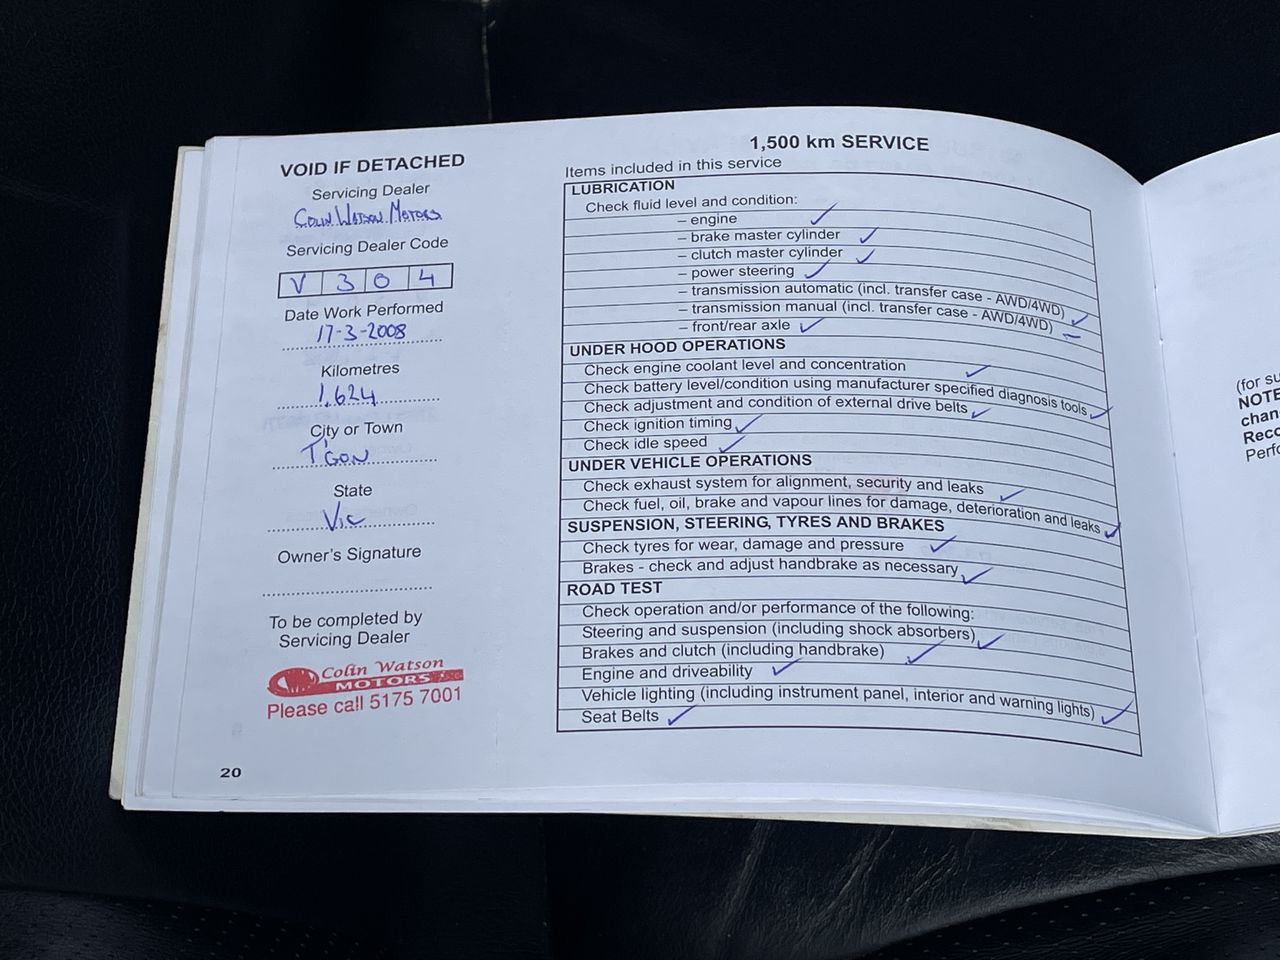 VOID IF DETACHED
Servicing Dealer
COLIN WATSON MOTORS
Servicing Dealer Code
V 3 0 4
Date Work Performed
17-3-2008
Kilometres
1,624
City or Town
T'GON
State
VIC
Owner's Signature
To be completed by
Servicing Dealer
Colin Watson
MOTORS
Please call 5175 7001
20
1,500 km SERVICE
Items included in this service
LUBRICATION
Check fluid level and condition:
– engine ✓
– brake master cylinder ✓
– clutch master cylinder ✓
– power steering ✓
– transmission automatic (incl. transfer case - AWD/4WD) ✓
– transmission manual (incl. transfer case - AWD/4WD) –
– front/rear axle ✓
UNDER HOOD OPERATIONS
Check engine coolant level and concentration ✓
Check battery level/condition using manufacturer specified diagnosis tools ✓
Check adjustment and condition of external drive belts ✓
Check ignition timing ✓
Check idle speed ✓
UNDER VEHICLE OPERATIONS
Check exhaust system for alignment, security and leaks ✓
Check fuel, oil, brake and vapour lines for damage, deterioration and leaks ✓
SUSPENSION, STEERING, TYRES AND BRAKES
Check tyres for wear, damage and pressure ✓
Brakes - check and adjust handbrake as necessary ✓
ROAD TEST
Check operation and/or performance of the following:
Steering and suspension (including shock absorbers) ✓
Brakes and clutch (including handbrake) ✓
Engine and driveability ✓
Vehicle lighting (including instrument panel, interior and warning lights) ✓
Seat Belts ✓
(for su
NOTE
chan
Reco
Perfo